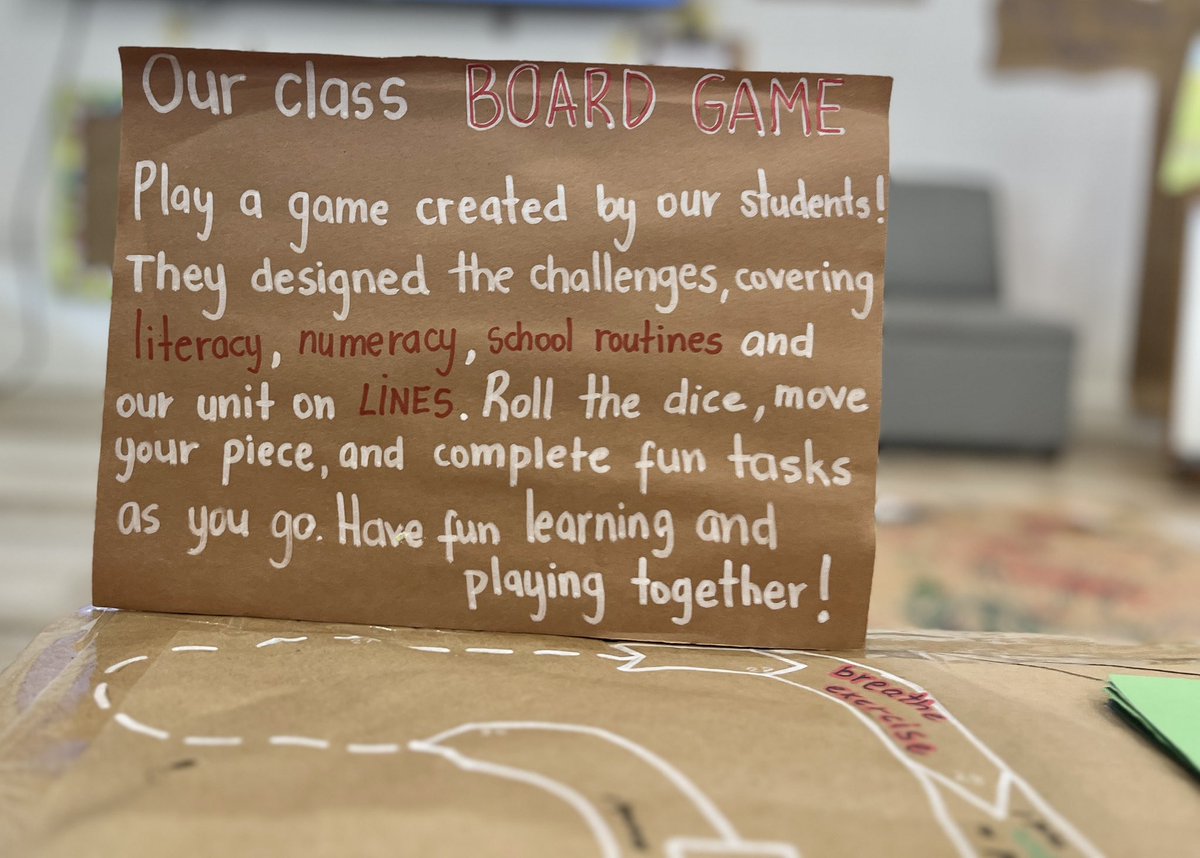 Our class BOARD GAME
Play a game created by our students!
They designed the challenges, covering
literacy, numeracy, school routines and
our unit on LINES. Roll the dice, move
your piece, and complete fun tasks
as you go. Have fun learning and
playing together!
breathe
exercise